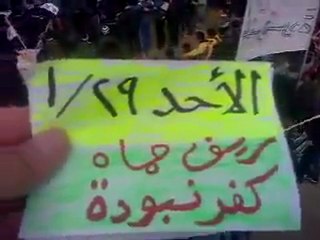 الأحد ١/٢٩
ريف حماه
كفرنبودة